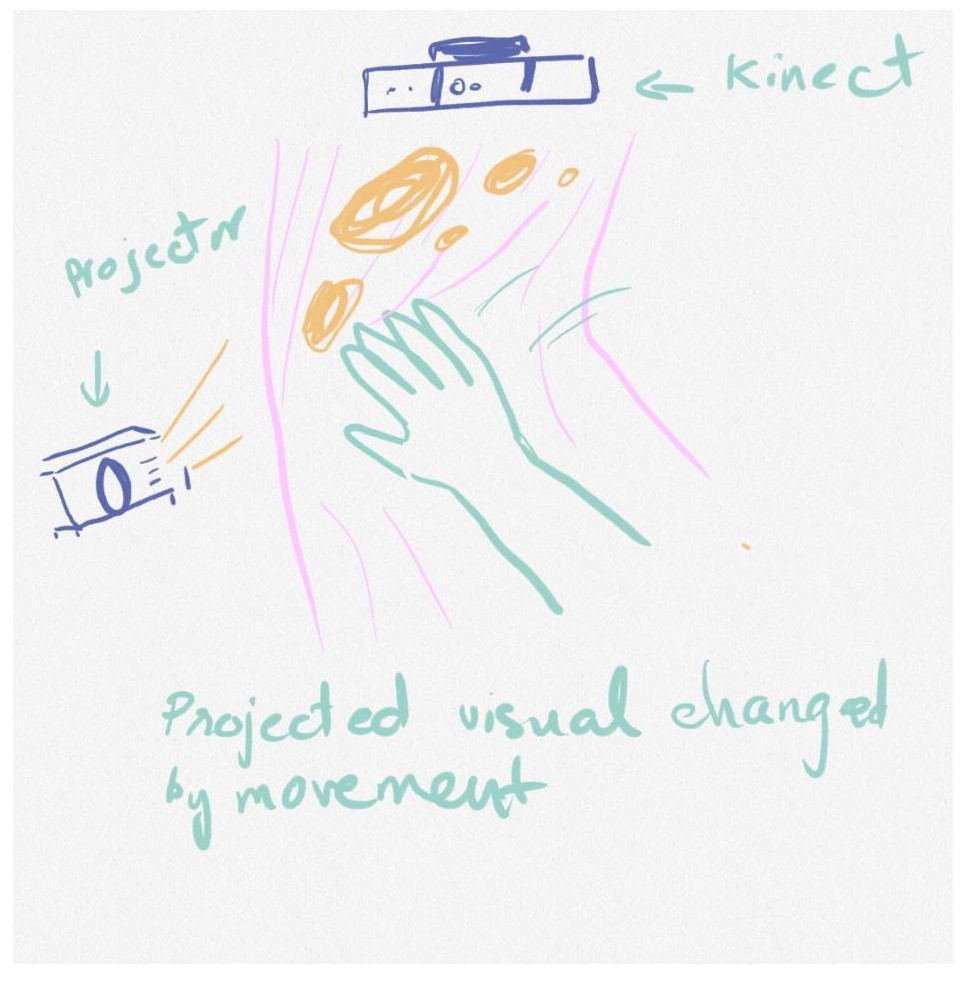 Kinect
Projector
Projected visual changed
by movement